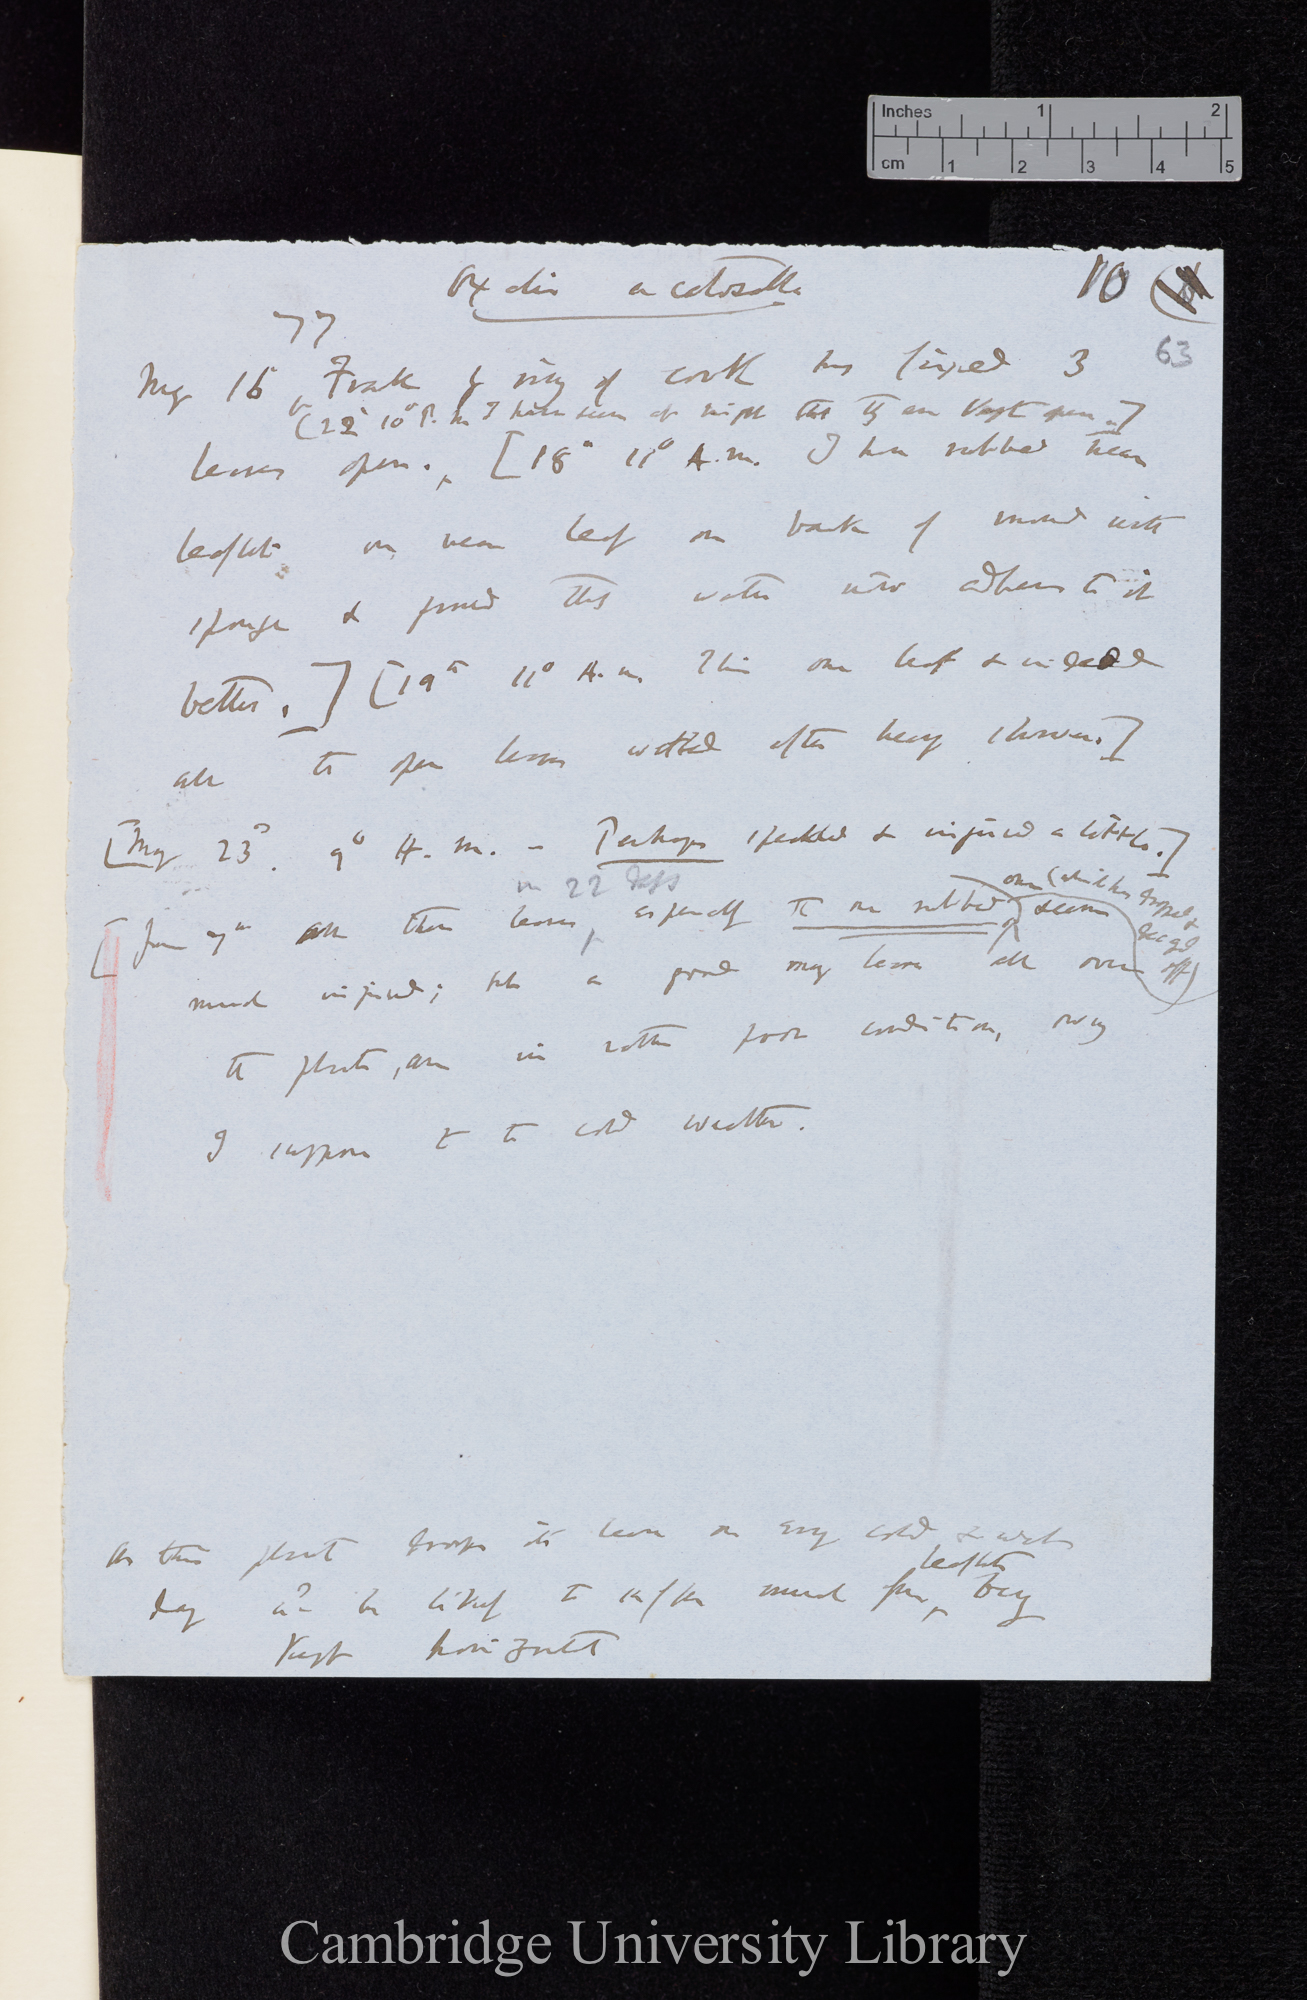 Inches 1 2
cm 1 2 3 4 5
Oxalis acetosella 10
63
77
May 16 Frank by ring of cork has fixed 3
(22d 10° P.m I have seen at night that they are kept open.]
leaves open. [18th 11° A.m. I have rubbed
leaflets on near leaf on bank of mound with
sponge & found that water now adheres to it
better.] [19th 11° A.m. This one leaf & indeed
all the open leaves wetted after heavy shower.]
[May 23d. 9° A.m. — Perhaps specked & injured a little.]
in 22 days
one (which has dropped &
decayed
off)
[June 7th all three leaves, especially the one rubbed seems
much injured; but a good many leaves all over
the plants, are in rather poor condition, owing
I suppose to the cold weather.
As this plant drops its leaves on any cold & wet
leaflets
day wd be likely to suffer much from being
kept horizontal
Cambridge University Library